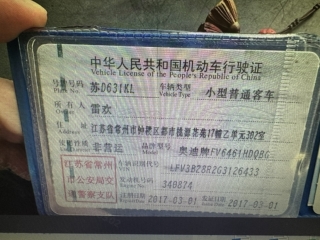 中华人民共和国机动车行驶证
Vehicle License of the People's Republic of China
号牌号码 苏D631KL 车辆类型 小型普通客车
Plate No. Vehicle Type
所有人 雷欢
Owner
住址 江苏省常州市钟楼区都市桃源茗苑17幢乙单元302室
使用性质 非营运 品牌型号 奥迪牌FV6461HDQBG
江苏省常州市公安局交通警察支队
车辆识别代号 LFV3B28R2G3126433
VIN
发动机号码 340874
Engine No.
注册日期 2017-03-01 发证日期 2017-03-01